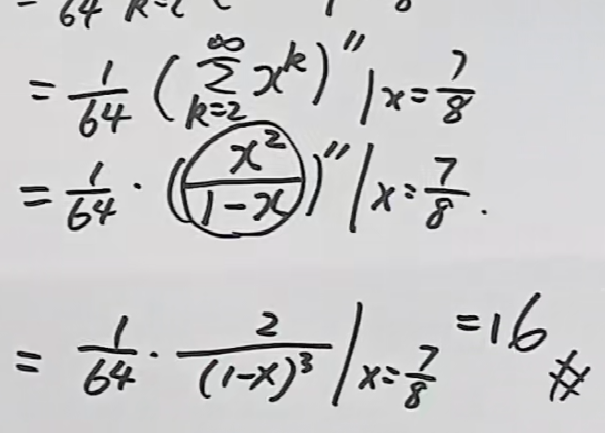 = 1/64 (∑_{k=2}^{∞} x^k)'' | x = 7/8
= 1/64 · (x²/(1-x))'' | x = 7/8.
= 1/64 · 2/(1-x)³ | x = 7/8 = 16 #